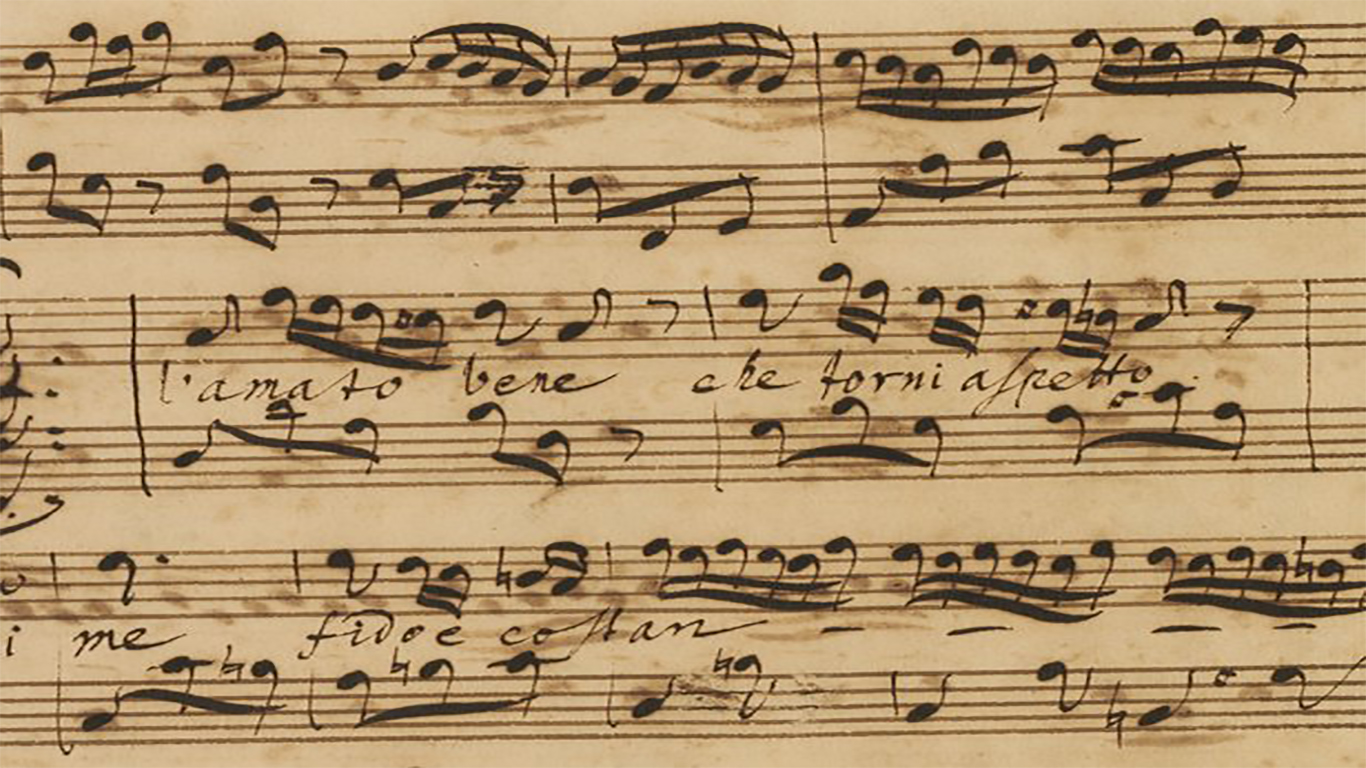 l'amato bene che torni aſpetto.
i me fido e coſtan